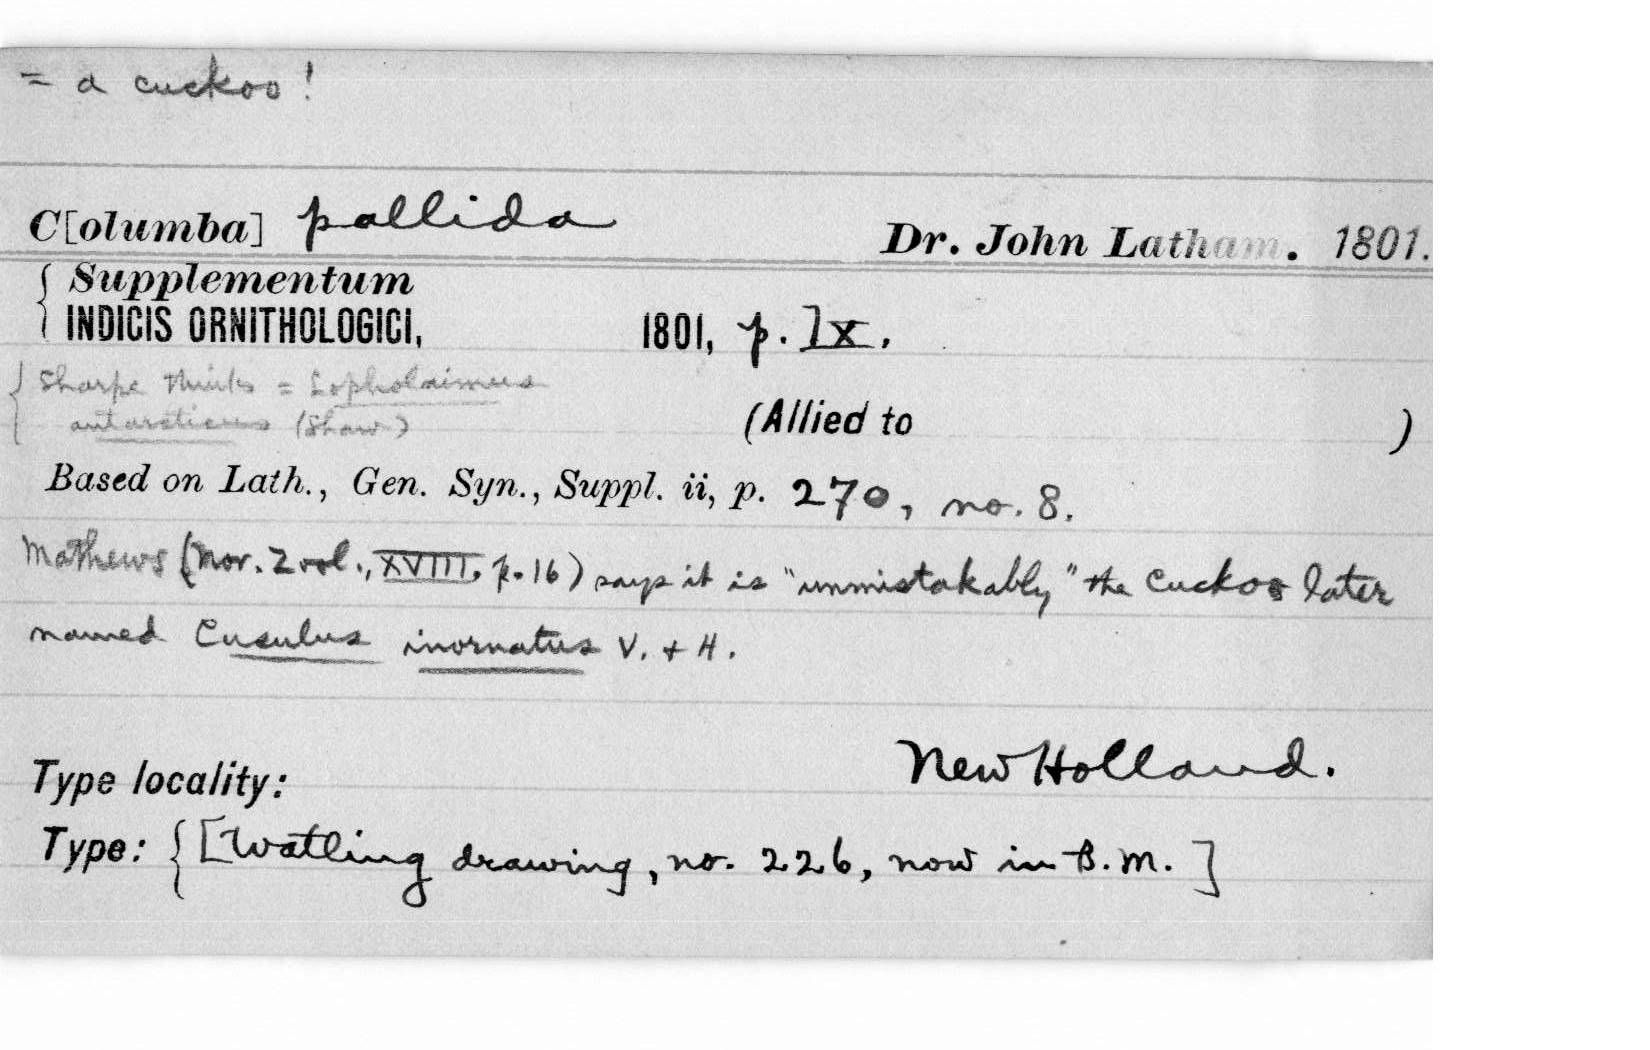 = a cuckoo!
C[olumba] pallida Dr. John Latham. 1801.
{ Supplementum
INDICIS ORNITHOLOGICI, 1801, p. lx.
{ Sharpe thinks = Lopholaimus
antarcticus (Shaw) (Allied to )
Based on Lath., Gen. Syn., Suppl. ii, p. 270, no. 8.
Mathews (Nov. Zool., XVIII, p. 16) says it is "unmistakably" the Cuckoo later
named Cuculus inornatus V. + H.
Type locality: New Holland.
Type: { [Watling drawing, no. 226, now in B. M.]